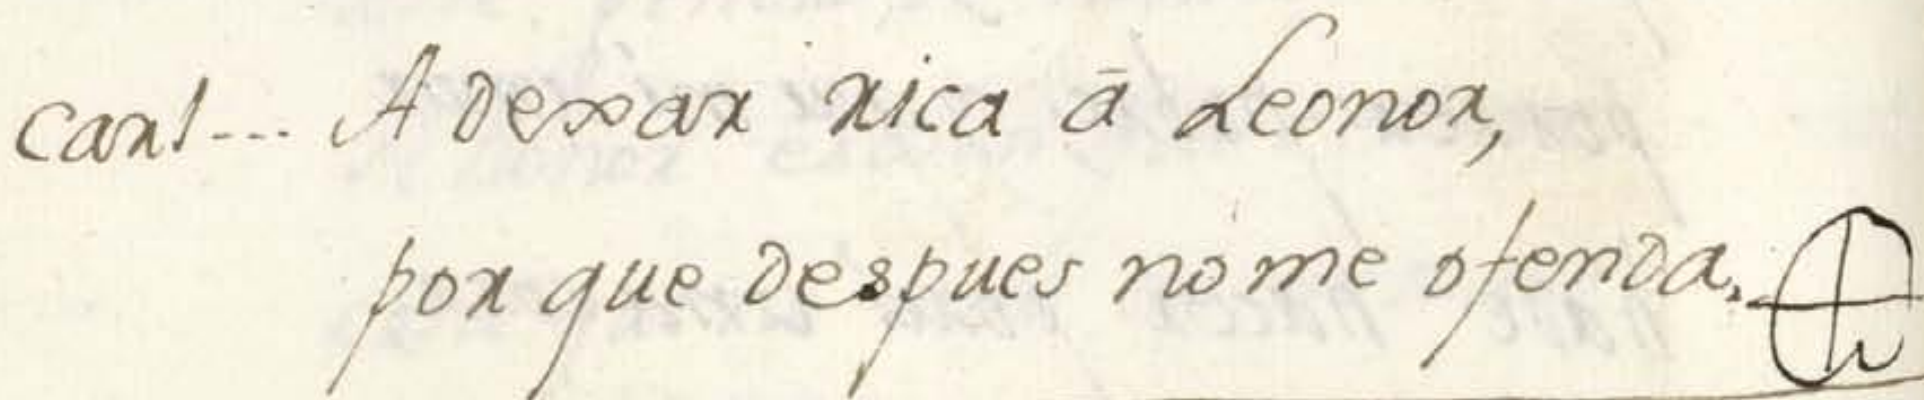 Carl... A dexar rica â Leonor,
por que despues nome ofenda.